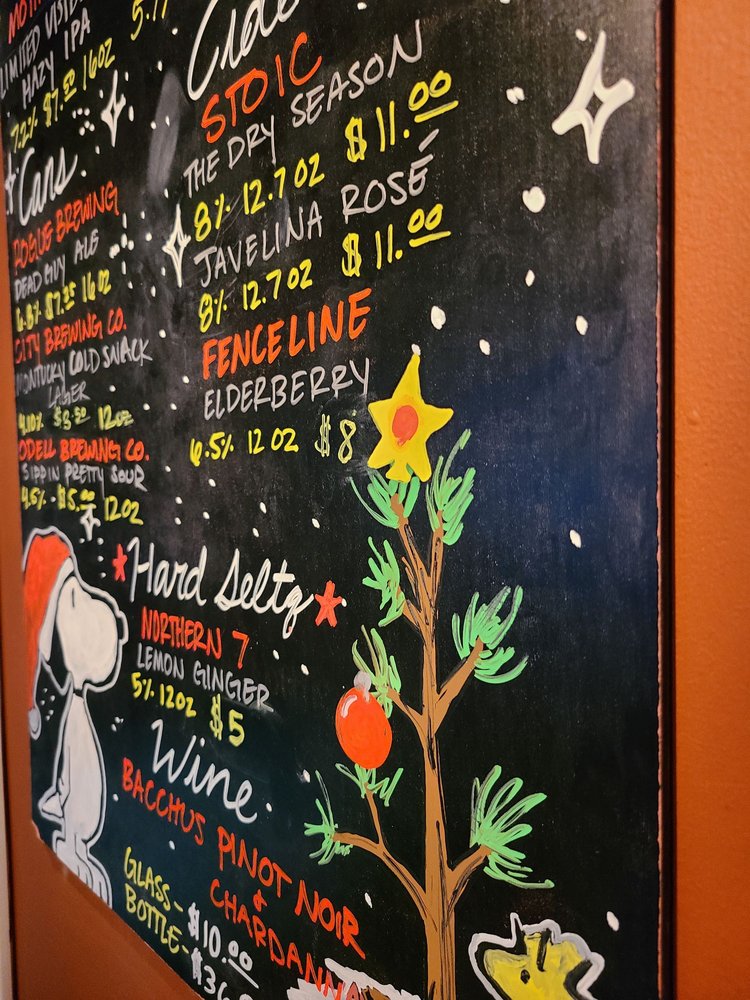 LIMITED
HAZY IPA
7.2% $7.50 16oz
5.
Cans
ROGUE BREWING
DEAD GUY ALE
6.8% 16oz
CITY BREWING CO.
MONTUCKY COLD SNACK
LAGER
12oz
ODELL BREWING CO.
SIPPIN PRETTY SOUR
4.5% $5.00 12oz
STOIC
THE DRY SEASON
8% 12.7 oz $11.00
JAVELINA ROSÉ
8% 12.7 oz $11.00
FENCELINE
ELDERBERRY
6.5% 12 oz $8
Hard Seltz
NORTHERN 7
LEMON GINGER
5% 12oz $5
Wine
BACCHUS PINOT NOIR
&
CHARDANNA
GLASS - $10.00
BOTTLE - $36